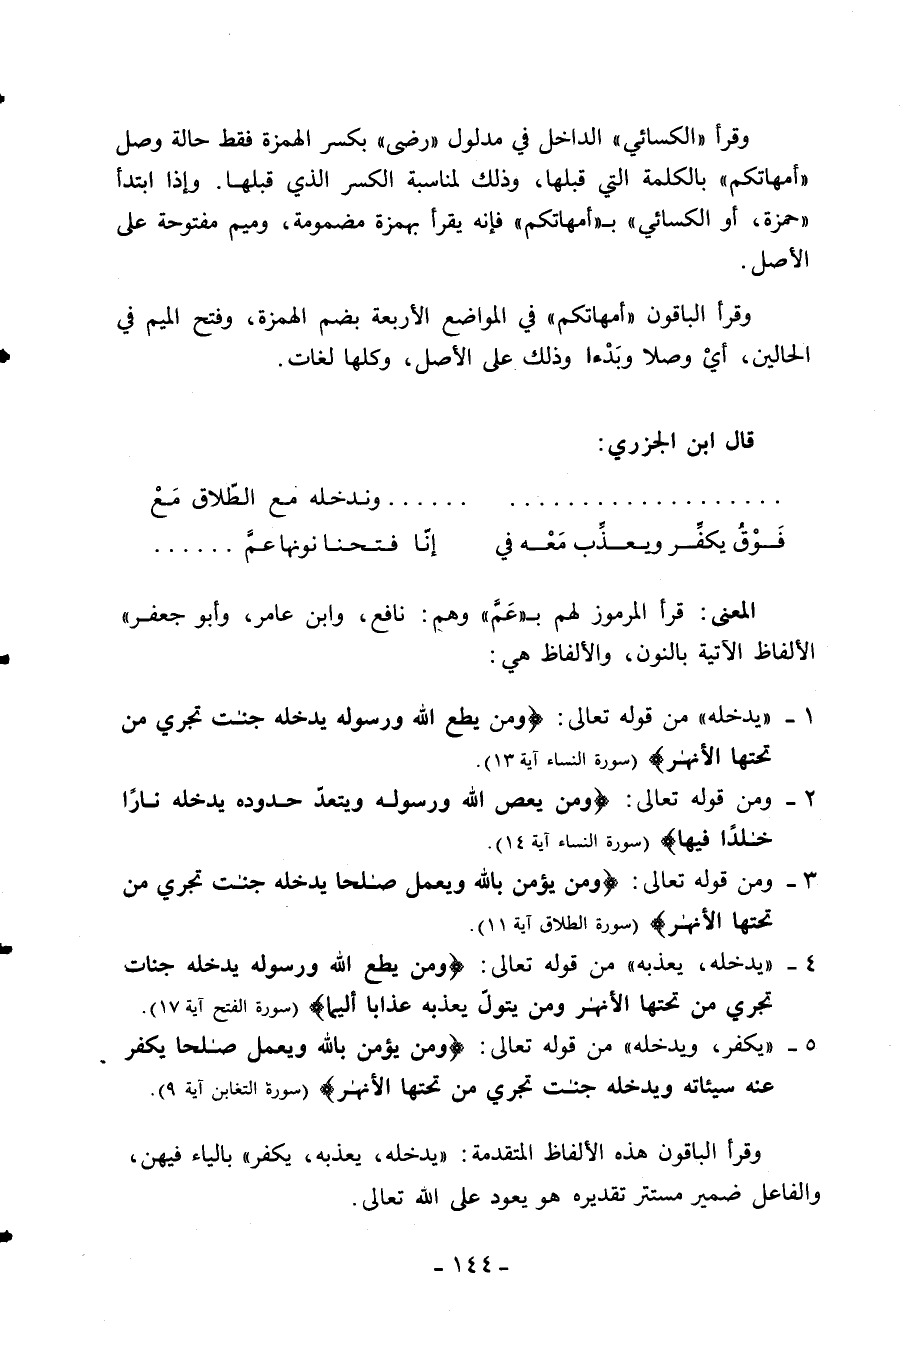 وقرأ «الكسائي» الداخل في مدلول «رضى» بكسر الهمزة فقط حالة وصل
«أمهاتكم» بالكلمة التي قبلها، وذلك لمناسبة الكسر الذي قبلها. وإذا ابتدأ
«حمزة، أو الكسائي» بـ«أمهاتكم» فإنه يقرأ بهمزة مضمومة، وميم مفتوحة على
الأصل.
وقرأ الباقون «أمهاتكم» في المواضع الأربعة بضم الهمزة، وفتح الميم في
الحالين، أيْ وصلا وبَدْءا وذلك على الأصل، وكلها لغات.
قال ابن الجزري:
. . . . . . . . . . . . . . . . . . . . . . . . . وندخله مع الطّلاق مَعْ
فَوْقُ يكفِّر ويعذِّب مَعْه في إنّا فتحنا نونها عمَّ . . . . . .
المعنى: قرأ المرموز لهم بـ«عَمَّ» وهم: نافع، وابن عامر، وأبو جعفر»
الألفاظ الآتية بالنون، والألفاظ هي:
١ - «يدخله» من قوله تعالى: ﴿ومن يطع الله ورسوله يدخله جنٰت تجري من
تحتها الأنهٰر﴾ (سورة النساء آية ١٣).
٢ - ومن قوله تعالى: ﴿ومن يعص الله ورسوله ويتعدّ حدوده يدخله نارًا
خٰلدًا فيها﴾ (سورة النساء آية ١٤).
٣ - ومن قوله تعالى: ﴿ومن يؤمن بالله ويعمل صٰلحا يدخله جنٰت تجري من
تحتها الأنهٰر﴾ (سورة الطلاق آية ١١).
٤ - «يدخله، يعذبه» من قوله تعالى: ﴿ومن يطع الله ورسوله يدخله جنات
تجري من تحتها الأنهٰر ومن يتولّ يعذبه عذابا أليما﴾ (سورة الفتح آية ١٧).
٥ - «يكفر، ويدخله» من قوله تعالى: ﴿ومن يؤمن بالله ويعمل صٰلحا يكفر
عنه سيئاته ويدخله جنٰت تجري من تحتها الأنهٰر﴾ (سورة التغابن آية ٩).
وقرأ الباقون هذه الألفاظ المتقدمة: «يدخله، يعذبه، يكفر» بالياء فيهن،
والفاعل ضمير مستتر تقديره هو يعود على الله تعالى.
- ١٤٤ -